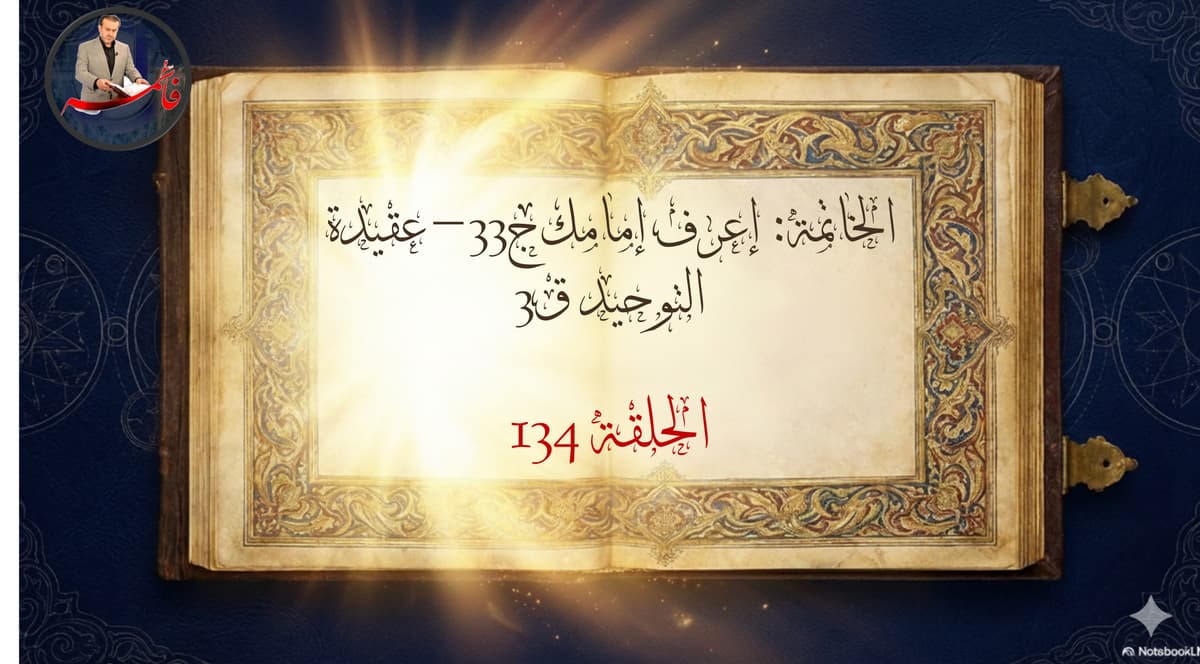 فاطمة
الخاتمة: إعرف إمامك ج33 – عقيدة
التوحيد ق3
الحلقة 134
NotebookLM